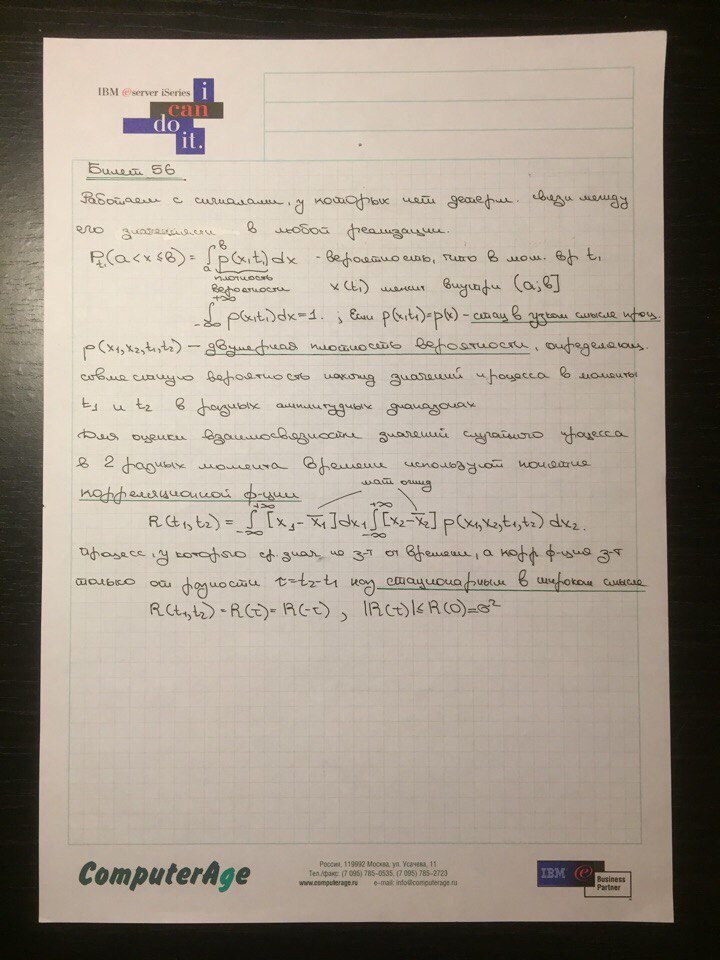 IBM e server iSeries i
can
do
it.
Билет 56
Работаем с сигналами, у которых нет детерм. связи между
его значениями в любой реализации.
P_{t_1}(a<x≤b) = ∫_a^b p(x,t_1)dx - вероятность, что в мом. вр t_1
плотность вероятности x(t_1) лежит внутри (a;b]
∫_{-∞}^{+∞} p(x,t_1)dx=1. ; Если p(x,t_1)=p(x) - стац в узком смысле проц.
p(x_1,x_2,t_1,t_2) – двумерная плотность вероятности, определяющ.
совместную вероятность нахожд значений процесса в моменты
t_1 и t_2 в разных амплитудных диапазонах
Для оценки взаимосвязности значений случайного процесса
в 2 разных момента времени используют понятие
корреляционной ф-ции
мат ожид
R(t_1,t_2) = ∫_{-∞}^{+∞}[x_1-x̄_1]dx_1∫_{-∞}^{+∞}[x_2-x̄_2]p(x_1,x_2,t_1,t_2)dx_2.
Процесс, у которого ср. знач. не з-т от времени, а корр ф-ция з-т
только от разности τ=t_2-t_1 наз стационарным в широком смысле
R(t_1,t_2) = R(τ) = R(-τ) , |R(τ)|≤R(0)=σ²
ComputerAge
Россия, 119992 Москва, ул. Усачева, 11
Тел./факс: (7 095) 785–0535, (7 095) 785–2723
www.computerage.ru e–mail: info@computerage.ru
IBM e Business
Partner